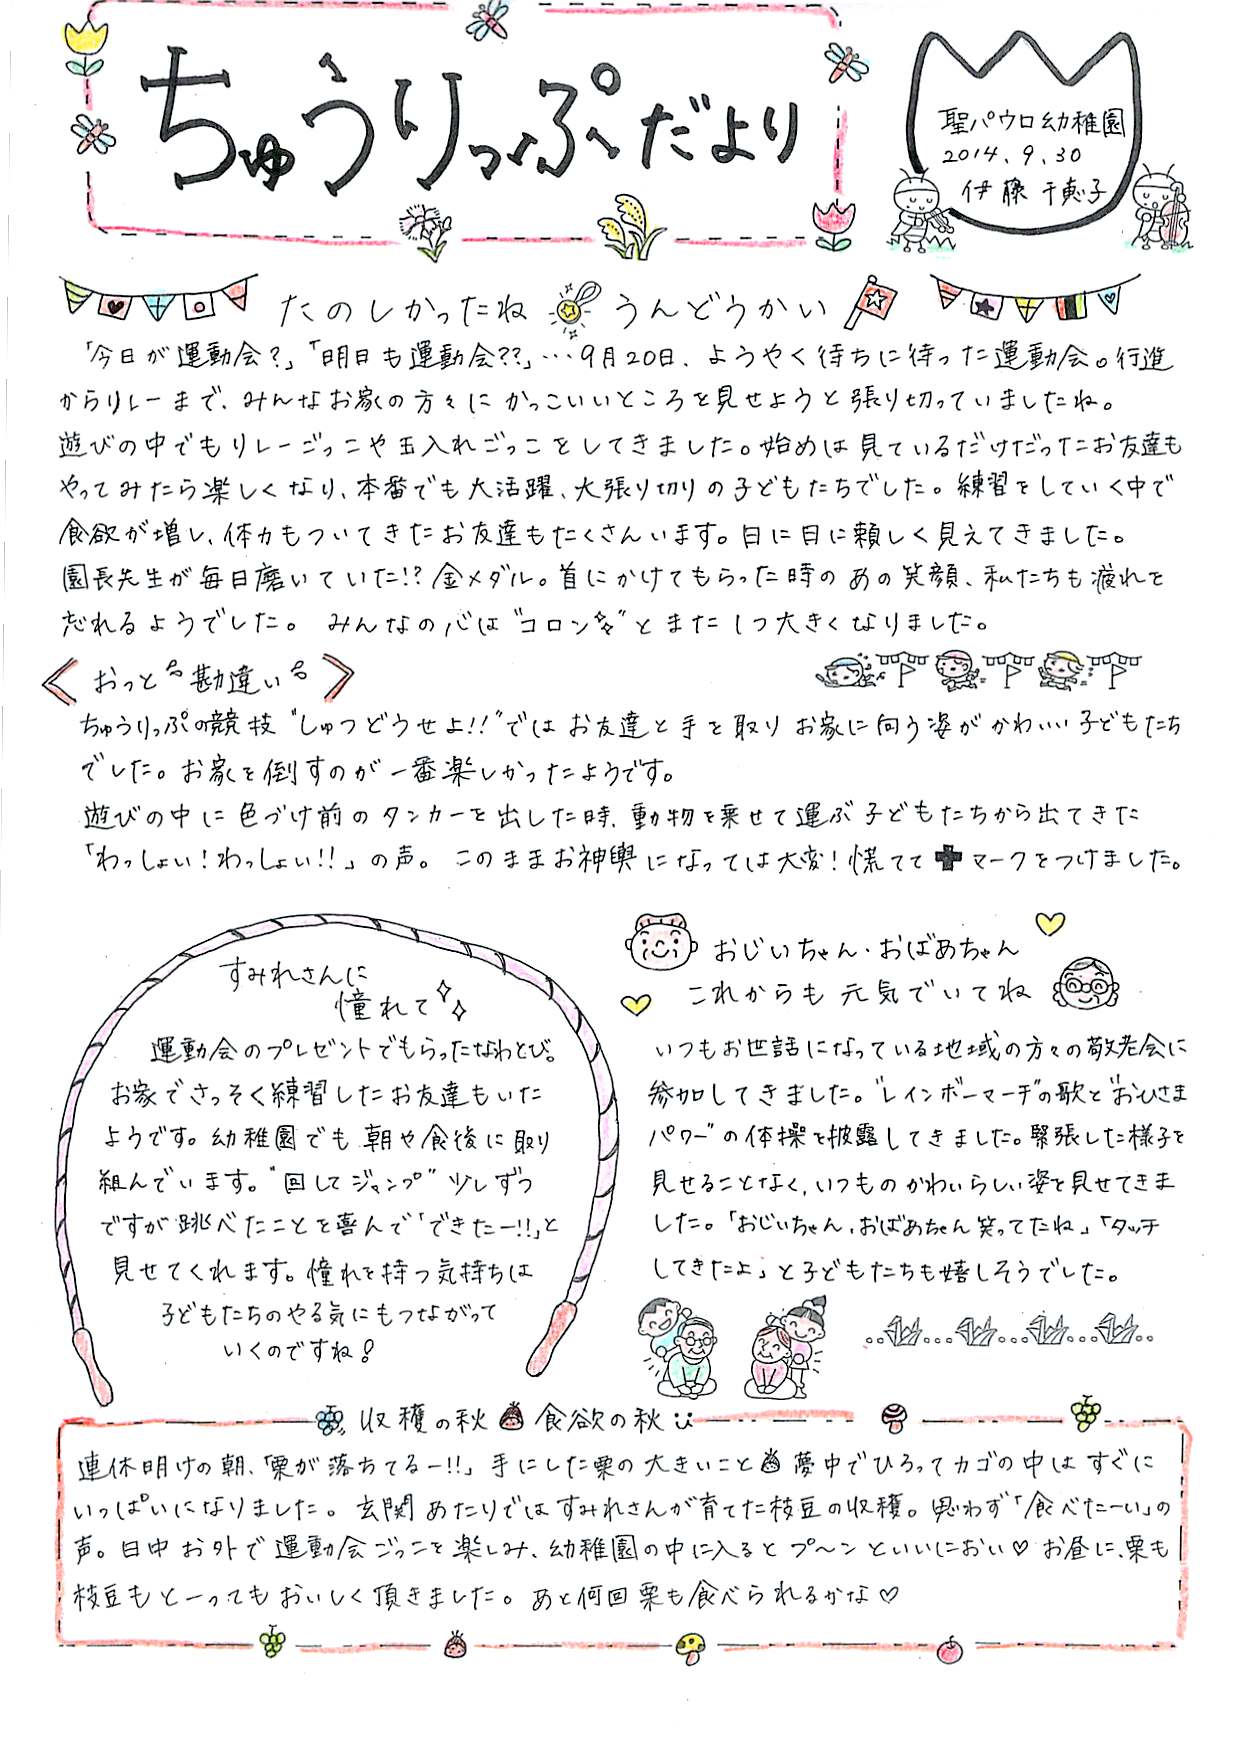 ちゅうりっぷだより
聖パウロ幼稚園
2014.9.30
伊藤 千恵子
たのしかったね うんどうかい
「今日が運動会?」「明日も運動会??」…9月20日、ようやく待ちに待った運動会。行進
からリレーまで、みんなお家の方々にかっこいいところを見せようと張り切っていましたね。
遊びの中でもリレーごっこや玉入れごっこをしてきました。始めは見ているだけだったお友達も
やってみたら楽しくなり、本番でも大活躍、大張り切りの子どもたちでした。練習をしていく中で
食欲が増し、体力もついてきたお友達もたくさんいます。日に日に頼しく見えてきました。
園長先生が毎日磨いていた!?金メダル。首にかけてもらった時のあの笑顔、私たちも疲れを
忘れるようでした。 みんなの心は“コロン”とまた1つ大きくなりました。
おっと 勘違い
ちゅうりっぷの競技“しゅつどうせよ!!”ではお友達と手を取りお家に向う姿がかわいい子どもたち
でした。お家を倒すのが一番楽しかったようです。
遊びの中に色づけ前のタンカーを出した時、動物を乗せて運ぶ子どもたちから出てきた
「わっしょい!わっしょい!!」の声。このままお神輿になっては大変!慌てて✚マークをつけました。
すみれさんに
憧れて
運動会のプレゼントでもらったなわとび。
お家でさっそく練習したお友達もいた
ようです。幼稚園でも朝や食後に取り
組んでいます。“回してジャンプ”少しずつ
ですが跳べたことを喜んで「できたー!!」と
見せてくれます。憧れを持つ気持ちは
子どもたちのやる気にもつながって
いくのですね!
おじいちゃん・おばあちゃん
これからも元気でいてね
いつもお世話になっている地域の方々の敬老会に
参加してきました。“レインボーマーチ”の歌と“おひさま
パワー”の体操を披露してきました。緊張した様子を
見せることなく、いつものかわいらしい姿を見せてきま
した。「おじいちゃん、おばあちゃん笑ってたね」「タッチ
してきたよ」と子どもたちも嬉しそうでした。
収穫の秋 食欲の秋
連休明けの朝、「栗が落ちてるー!!」手にした栗の大きいこと 夢中でひろってカゴの中はすぐに
いっぱいになりました。玄関あたりではすみれさんが育てた枝豆の収穫。思わず「食べたーい」の
声。日中お外で運動会ごっこを楽しみ、幼稚園の中に入るとプ〜ンといいにおい♡ お昼に、栗も
枝豆もとーってもおいしく頂きました。あと何回栗も食べられるかな♡